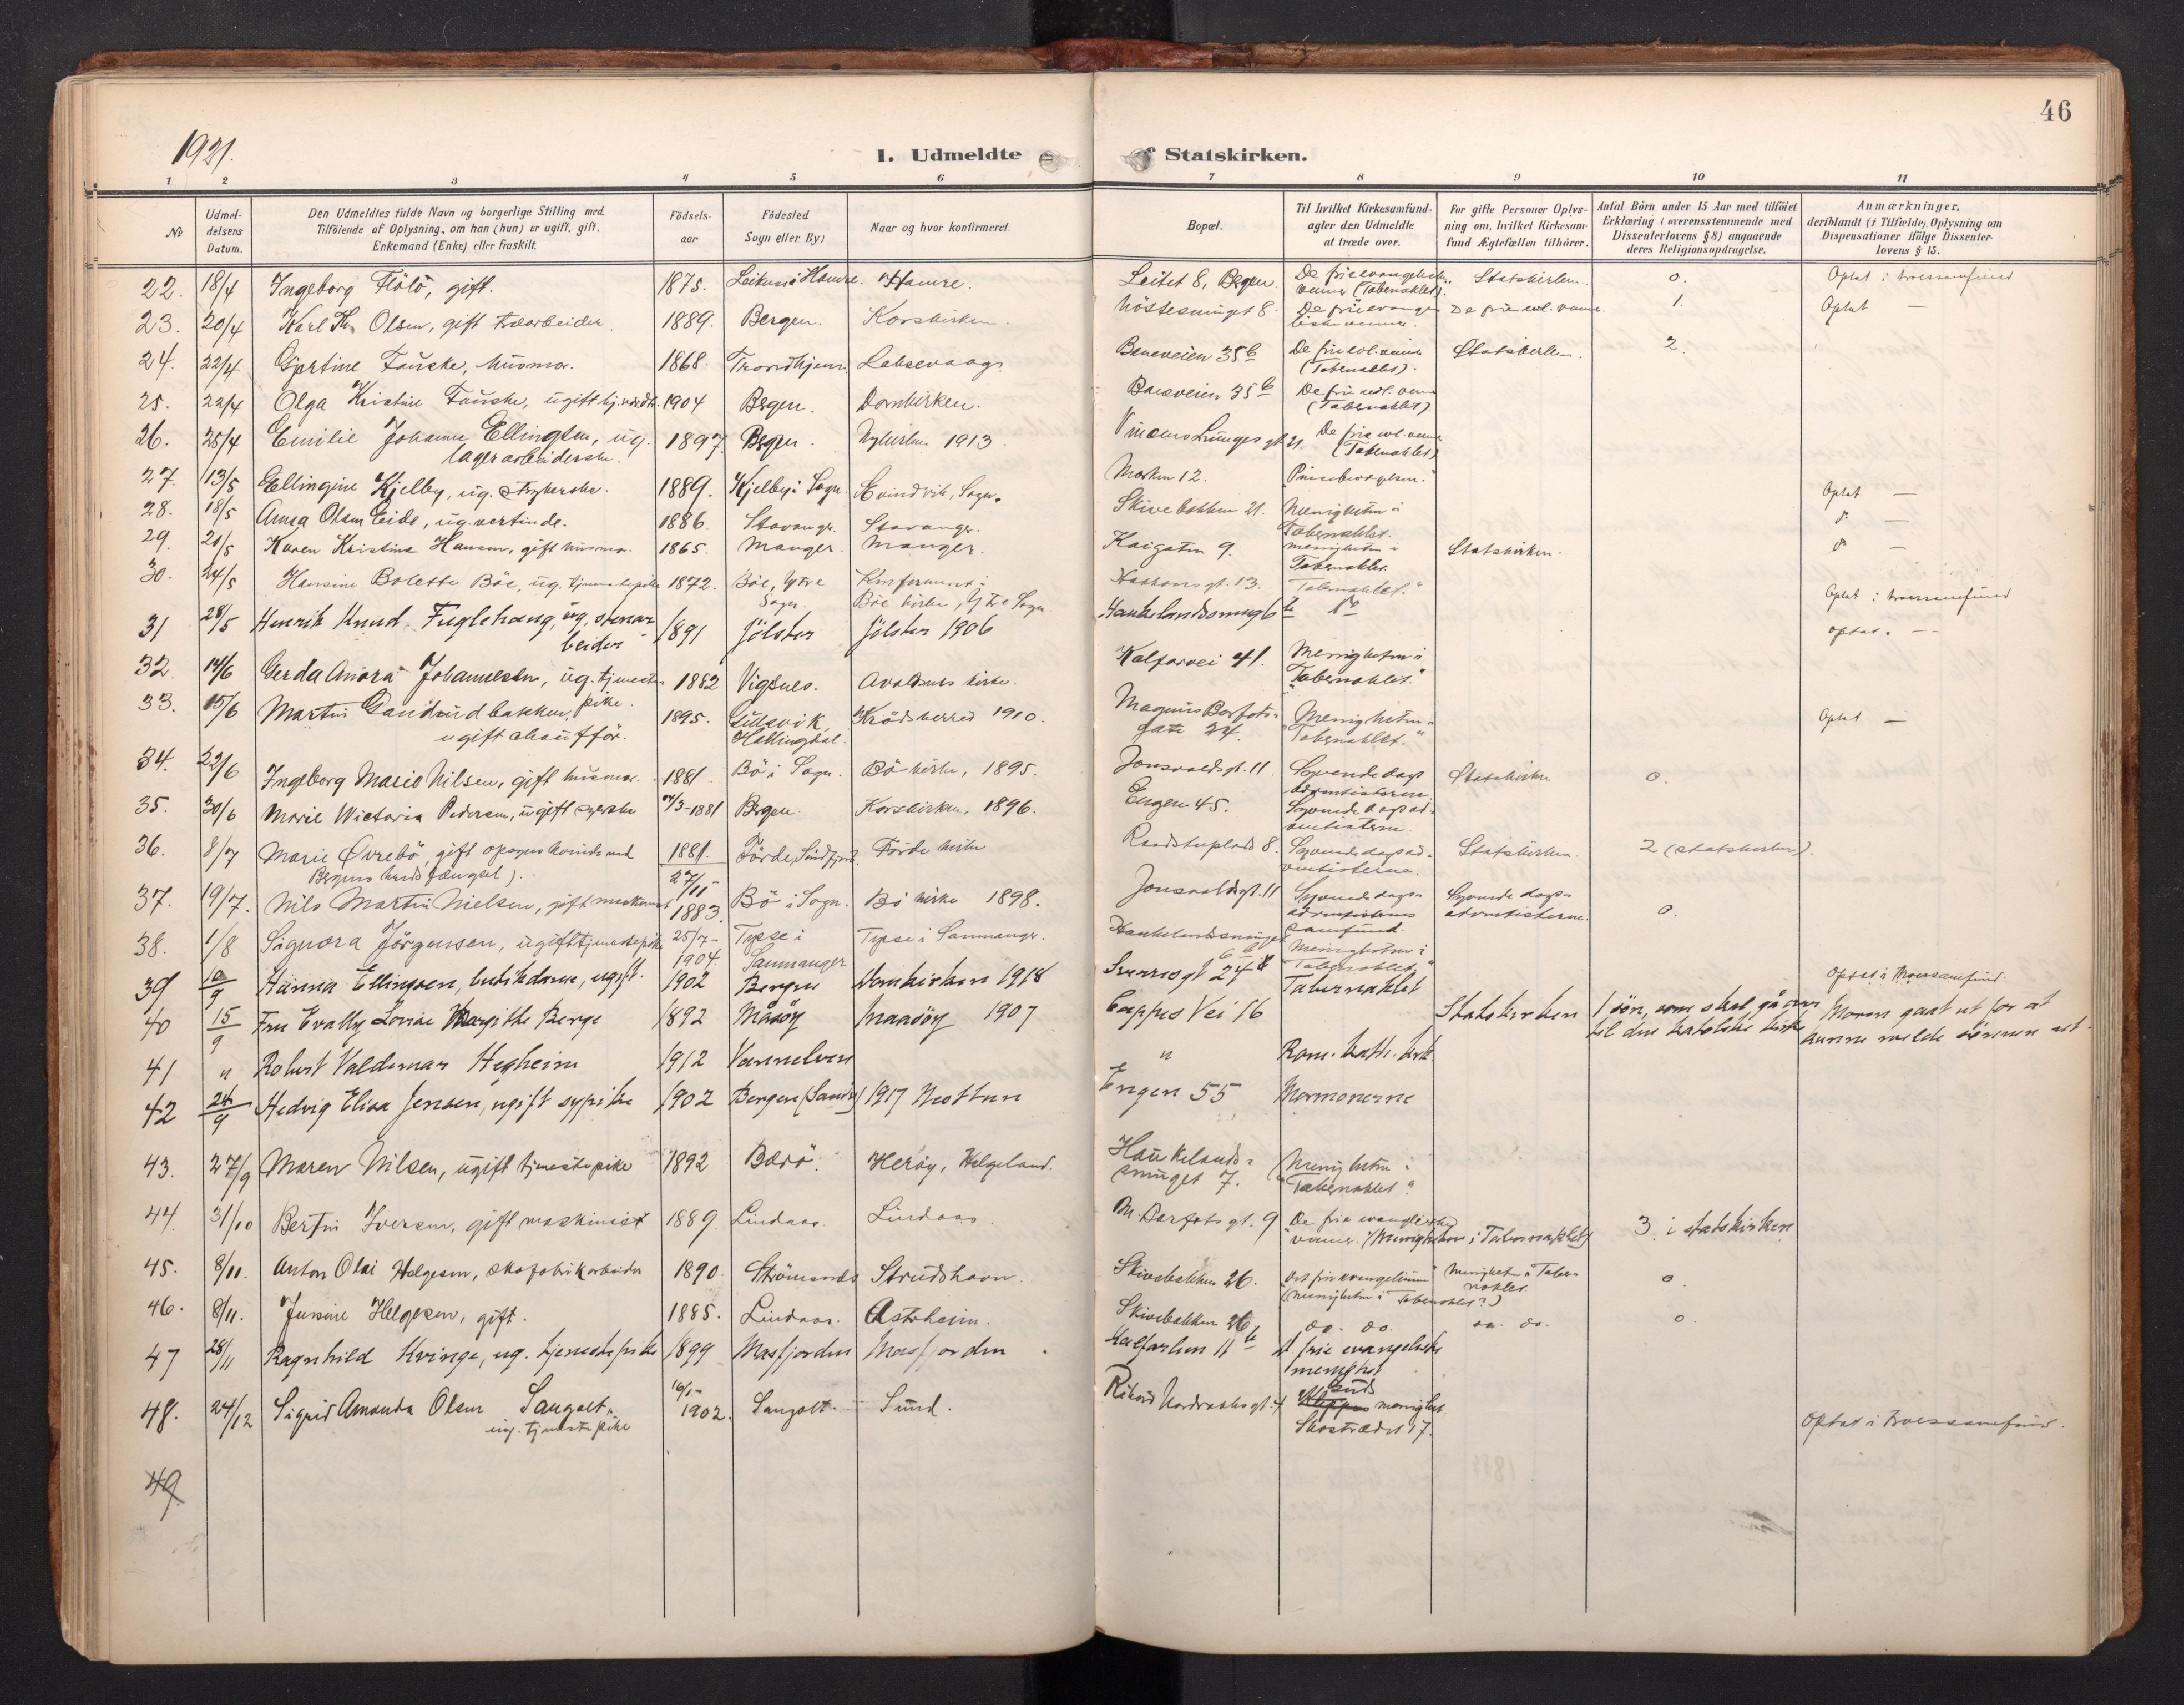 46
1921.
1. Udmeldte
Statskirken.
1 2 3 4 5 6 7 8 9 10 11
No
Udmel-
delsens
Datum.
Den Udmeldtes fulde Navn og borgerlige Stilling med
Tilföiende af Oplysning, om han (hun) er ugift, gift,
Enkemand (Enke) eller fraskilt.
Födsels-
aar
Födested
Sogn eller By)
Naar og hvor konfirmeret.
Bopæl.
Til hvilket Kirkesamfund-
agter den Udmeldte
at træde over.
For gifte Personer Oplys-
ning om, hvilket Kirkesam-
fund Ægtefællen tilhörer.
Antal Börn under 15 Aar med tilföiet
Erklæring i overensstemmende med
Dissenterlovens § 8) angaaende
deres Religionsopdragelse.
Anmærkninger,
deriblandt (i Tilfælde) Oplysning om
Dispensationer ifölge Dissenter-
lovens § 15.
22. 18/4 Ingeborg Flötö, gift. 1875. Hamre. Leitet 8, Bergen. De frie evangeliske venner (Tabernaklet). Statskirken. 0. Optat i troessamfund
23. 20/4 Karl Olsen, gift træarbeider. 1889. Bergen. Korskirken. De frie evangeliske venner. De frie evl. venner. 1. Optat —
24. 22/4 Gjertine Fauske, husmor. 1868. Trondhjem Laksevaag. 35b De frie evl. venner (Tabernaklet). Statskirken. 2.
25. 22/4 Olga Kristine Fauske, ugift 1904 Bergen. Domkirken. 35b De frie evl. venner (Tabernaklet).
26. 25/4 Emilie Johanne Ellingsen, ug. lagerarbeiderske. 1897. Bergen. Nykirken 1913. Vincens Lunges gt. 21. De frie evl. venner (Tabernaklet)
27. 13/5 Ellingine Kjelby, ug. strykerske. 1889. Kjelby i Sogn. Eivindvik, Sogn. Marken 12. Pinsebevægelsen. Optat —
28. 18/5 Anna Olsen Eide, ug. vertinde. 1886. Stavanger. Stavanger. Skivebakken 21. Menigheten i Tabernaklet. —
29. 20/5 Karen Kristine Hansen, gift husmor. 1865. Manger. Manger. Kaigaten 9. menigheten i Tabernaklet. Statskirken. —
30. 24/5 Hansine Bolette Böe, ug. tjenestepike 1872. Böe, Ytre Sogn. Konfirmeret i Böe kirke, Ytre Sogn. Haakons gt. 13. "Tabernaklet." Optat i troessamfund
31 28/5 Henrik Knud Fuglehaug, ug. stenarbeider 1891 Jölster Jölster 1906 Haukelandssmug 6 do optat. —
32. 14/6 Gerda Anora Johannesen, ug. tjenestepike. 1882 Vigsnes. Avaldsnes kirke. Kalfarvei 41. Menigheten i "Tabernaklet."
33. 15/6 Martin Sandrudbakken, ugift chaufför. 1895. Hallingdal. Krödsherred 1910. Magnus Barfots gate 24. Menigheten "Tabernaklet." Optat —
34. 22/6 Ingeborg Marie Nilsen, gift husmor. 1881 Bö i Sogn. Bö kirke, 1895. Jonsvoldsgt. 11 Syvende dags adventisterne. Statskirken 0.
35. 30/6 Marie Wictoria Pedersen, ugift syerske 14/3-1881 Bergen. Korskirken, 1896. Engen 45. Syvende dags adventisterne.
36. 8/7 Marie Övrebö, gift opsynskvinde ved Bergens kredsfængsel). 1881. Förde, Söndfjord. Förde kirke Raadstuplads 8. Syvende dags adventisterne. Statskirken. 2 (statskirken).
37. 19/7. Nils Martin Nielsen, gift 27/11-1883. Bö i Sogn. Bö kirke 1898. Jonsvoldsgt. 11 Syvende dags adventisternes samfund. Syvende dags adventisterne. 0.
38. 1/8 Signora Jörgensen, ugift tjenestepike 25/7-1904. Tysse i Samnanger Tysse i Samnanger. Haukelandssmuget 6 b Menigheten i "Tabernaklet"
39 10/9 Hanna Ellingsen, butikdame, ugift. 1902 Bergen Domkirken 1918 Sverresgt 24 Tabernaklet Optat i troessamfund.
40 15/9 Fru Evally Lovise Margithe Berge 1892 Måsöy Maasöy 1907 Cappes Vei 16 Statskirken 1 sön, som skal gå over til den katolske kirke Moren gaat ut for at kunne melde sönnen ut.
41 " Robert Valdemar Hegheim 1912 Vannelven " Rom. kath. kirke
42 24/9 Hedvig Elisa Jensen, ugift sypike 1902 Bergen 1917 Nesttun Engen 55 Mormonerne
43. 27/9 Maren Nilsen, ugift tjenestepike 1892 Herøy, Helgeland. Haukelandssmuget 7. Menigheten i "Tabernaklet".
44. 31/10 Bertin Iversen, gift maskinist 1889. Lindaas. Lindaas. M. Barfots gt. 9 De frie evangeliske venner. (Menigheten i Tabernaklet) 3 i statskirken
45. 8/11. Anton Olai Helgesen, skofabrikarbeider 1890. Strömsnes Strudshavn. Skivebakken 26. Det frie evangelium (Menigheten i Tabernaklet?) Menigheten i Tabernaklet. 0.
46. 8/11. Jensine Helgesen, gift. 1885. Lindaas. Astrheim. Skivebakken 26 do. do. do. do. 0.
47 28/11 Ragnhild Kvinge, ug. tjenestepike 1899 Masfjorden Masfjorden Kalfarlien 11b d frie evangeliske menighet
48. 24/12 Sigrid Amanda Olsen Sangolt, ug. tjenestepike 16/1-1902. Sangolt. Sund. Rikard Nordraaks gt. 4 Guds menighet, Skostrædet 17. Optat i troessamfund.
49.